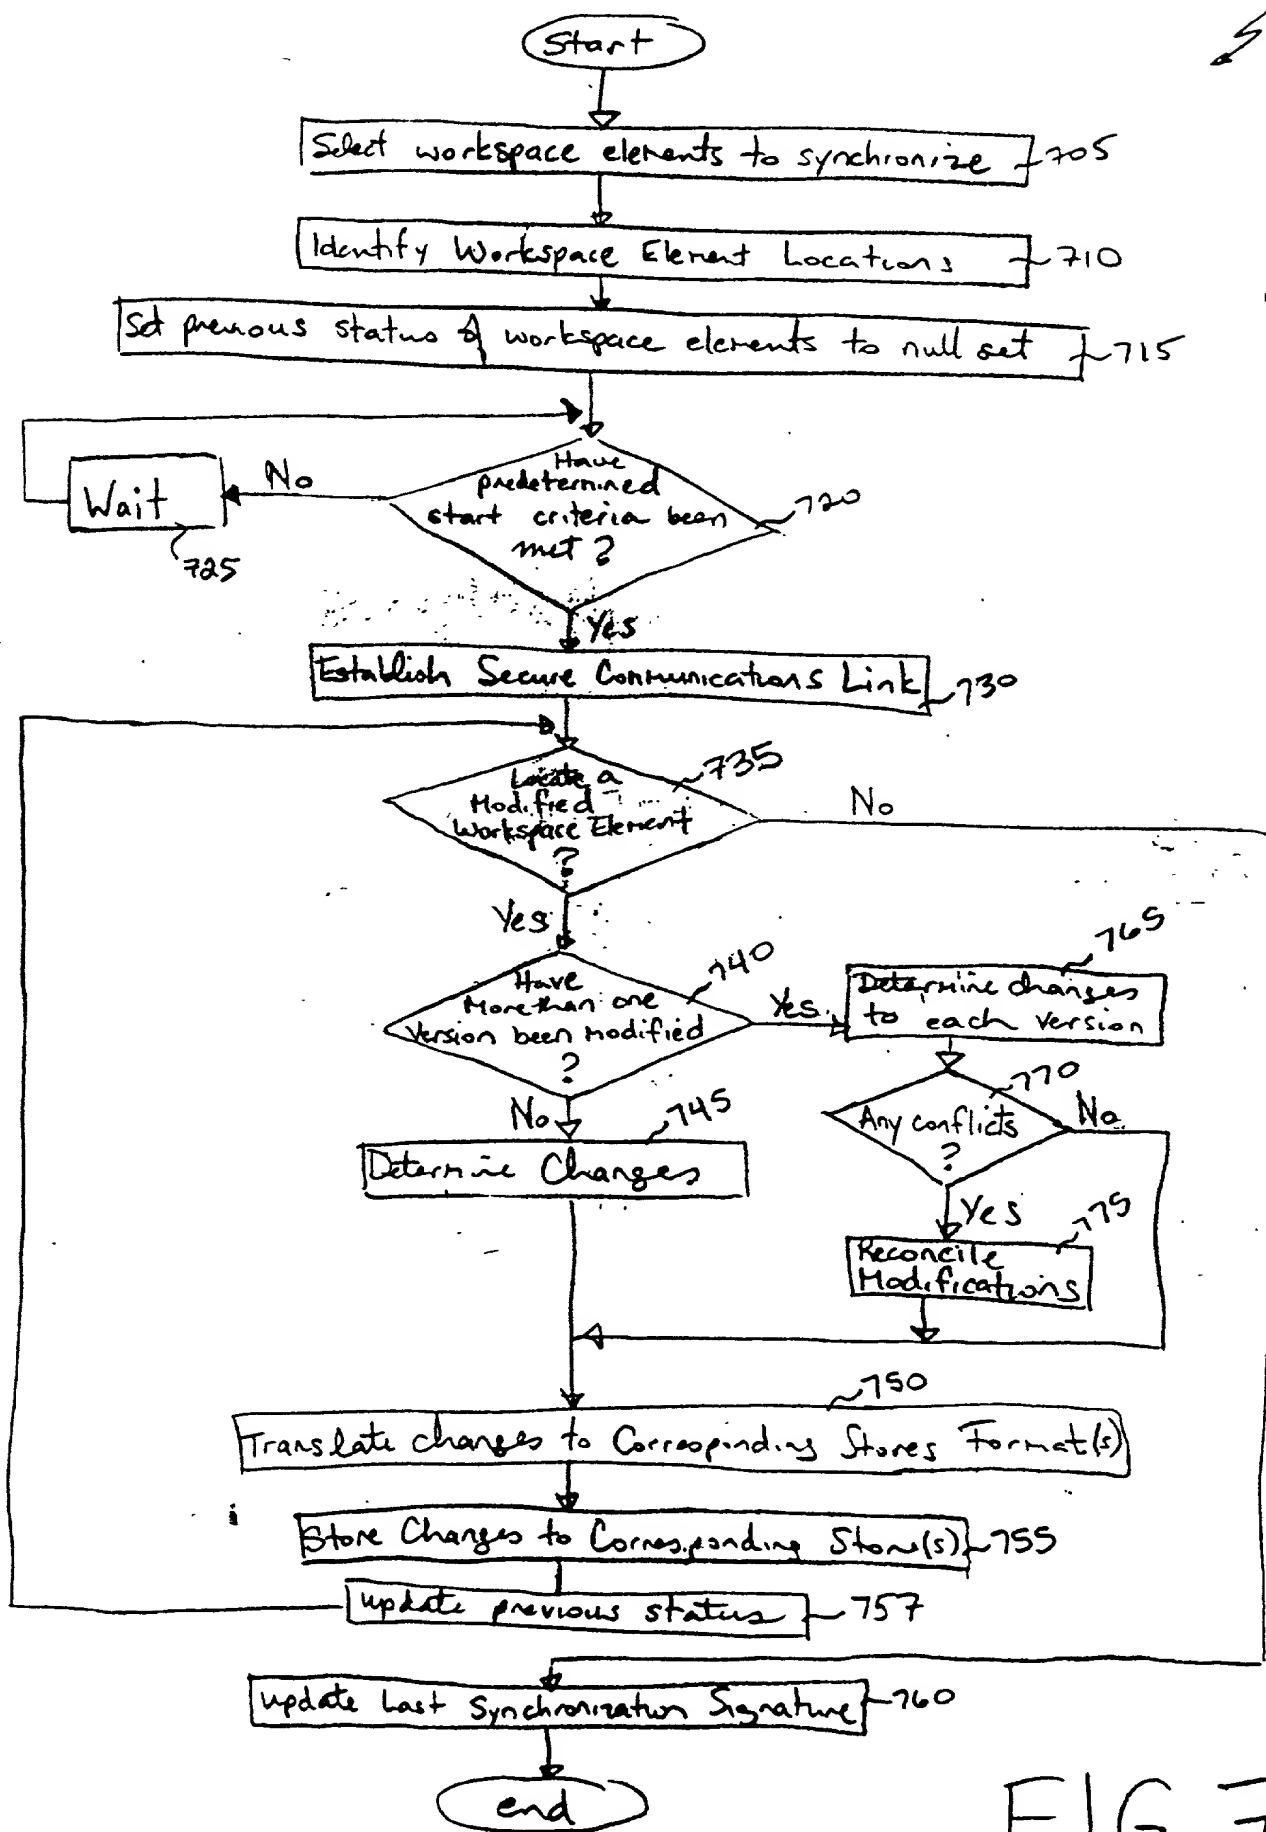 Start
Select workspace elements to synchronize 705
Identify Workspace Element Locations 710
Set previous status of workspace elements to null set 715
Have
predetermined
start criteria been
met?
720
No
Wait
725
Yes
Establish Secure Communications Link 730
Locate a
Modified
Workspace Element
?
735
No
Yes
Have
More than one
version been modified
?
740
Yes
765
Determine changes
to each version
770
Any conflicts
?
No
No
745
Determine Changes
Yes
775
Reconcile
Modifications
750
Translate changes to Corresponding Stores Format(s)
Store Changes to Corresponding Store(s) 755
update previous status 757
update Last Synchronization Signature 760
end
FIG 7